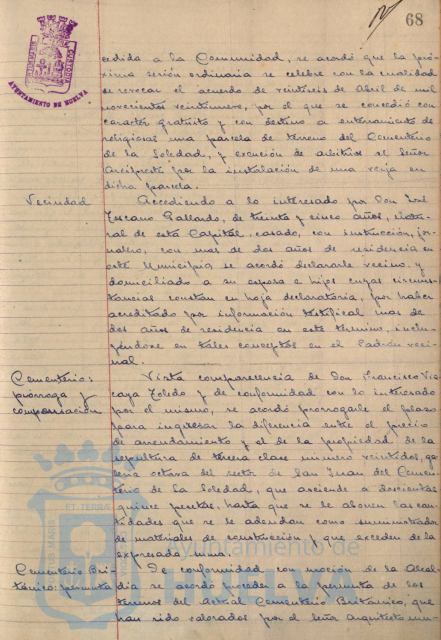 68
AYUNTAMIENTO DE HUELVA
cedida a la Comunidad, se acordó que la pró-
xima sesión ordinaria se celebre con la cualidad
de revocar el acuerdo de veintiseis de Abril de mil
novecientos veintinueve, por el que se concedió con
carácter gratuito y con destino a enterramiento de
religiosas una parcela de terreno del Cementerio
de la Soledad, y exención de arbitrios al Señor
Arcipreste por la instalación de una verja en
dicha parcela.
Vecindad
Accediendo a lo interesado por Don José
Toscano Gallardo, de treinta y cinco años, natu-
ral de esta Capital, casado, con instrucción, jor-
nalero, con mas de dos años de residencia en
este Municipio se acordó declararle vecino y
domiciliado a su esposa e hijos cuyas circuns-
tancias constan en hoja declaratoria, por haber
acreditado por información testifical mas de
dos años de residencia en este termino, inclu-
yéndose en tales conceptos en el Padrón veci-
nal.
Cementerio:
prórroga y
compensación
Vista comparecencia de Don Francisco Viz-
caya Toledo y de conformidad con lo interesado
por el mismo, se acordó prorrogarle el plazo
para ingresar la diferencia entre el precio
de arrendamiento y el de la propiedad de la
sepultura de tercera clase número veintidos, ga-
lería octava del sector de San Juan del Cemen-
terio de la Soledad, que asciende a doscientas
quince pesetas, hasta que se le abonen las can-
tidades que se le adeudan como suministrador
de materiales de construcción y que exceden de la
expresada suma.
Cementerio Bri-
tánico: permuta
De conformidad con moción de la Alcal-
día se acordó proceder a la permuta de los
terrenos del Actual Cementerio Británico, que
han sido valorados por el Señor Arquitecto mu-
Ayuntamiento de
HUELVA